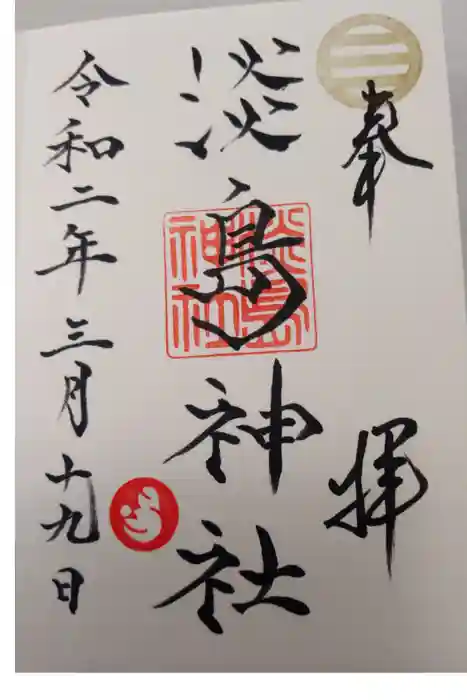 奉拝
淡島神社
淡島神社
令和二年三月十九日